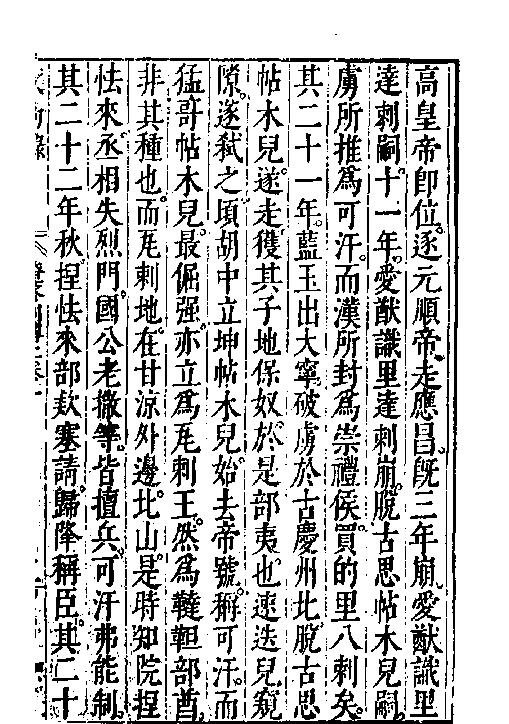 高皇帝卽位。逐元順帝、走應昌。旣三年崩、愛猷識里
達剌嗣。十一年。愛猷識里達剌崩。脫古思帖木兒嗣。
虜所推爲可汗。而漢所封爲崇禮侯。買的里八剌矣。
其二十一年。藍玉出大寧。破虜於古慶州北。脫古思
帖木兒。遂走。獲其子地保奴。於是部夷。也速迭兒。窺
隙。遂弑之。頃胡中立坤帖木兒。始去帝號。稱可汗。而
猛哥帖木兒。最倔强。亦立爲瓦剌王。然爲韃靼部酋。
非其種也。而瓦剌地。在甘涼外邊。北山。是時知院捏
怯來。丞相失烈門。國公老撒等。皆擅兵。可汗弗能制。
其二十二年秋。捏怯來部欵塞請歸降稱臣。其二十